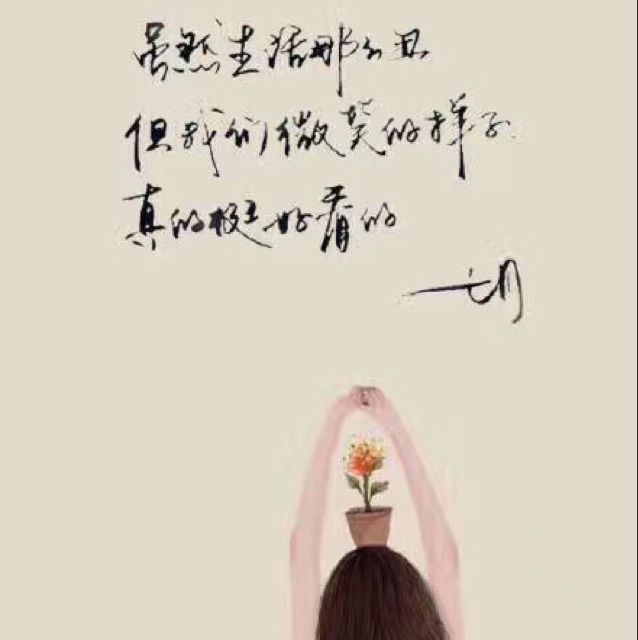 虽然生活那么丑
但我们微笑的样子
真的挺好看的
一切